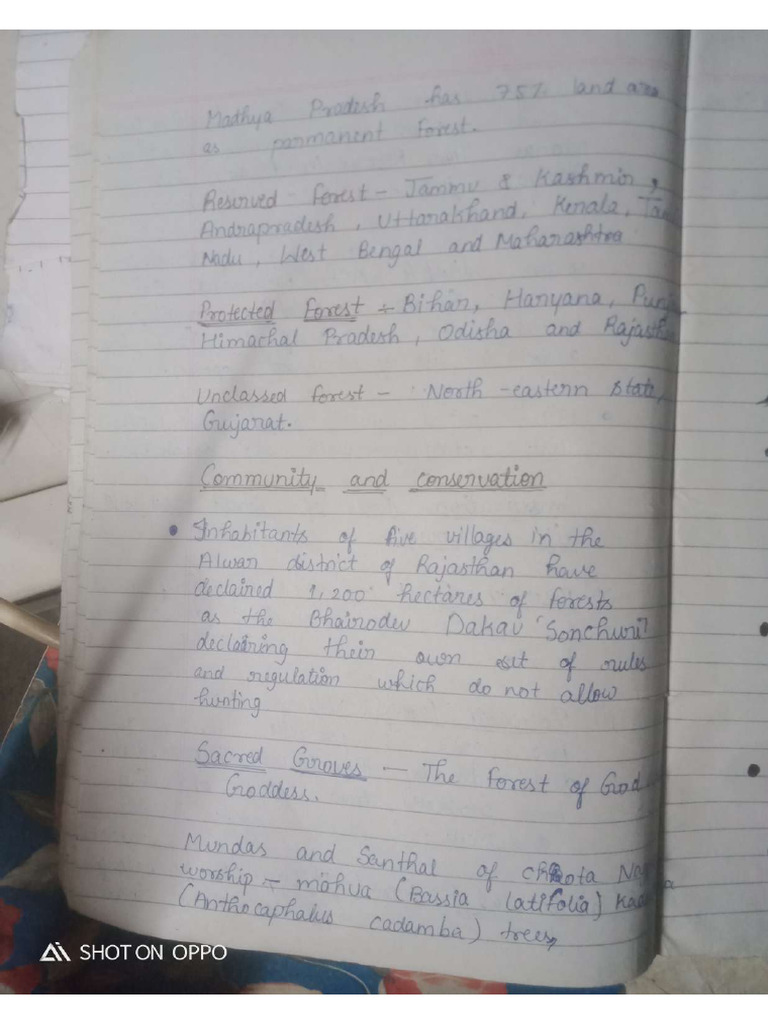 Madhya Pradesh has 75% land area
as parmanent Forest.
Reserved Forest - Jammu & Kashmir,
Andrapradesh, Uttarakhand, Kerala,
Nadu, West Bengal and Maharashtra
Protected Forest - Bihar, Haryana,
Himachal Pradesh, Odisha and
Unclassed forest - North-eastern state,
Gujarat.
Community and conservation
• Inhabitants of five villages in the
Alwar district of Rajasthan have
declaired 1,200 hectares of forests
as the Bhairodev Dakav 'Sonchuri'
declaring their own set of rules
and regulation which do not allow
hunting
Sacred Groves - The Forest of God
Goddess.
Mundas and Santhal of Chhota
worship - mahua (Bassia latifolia)
(Anthocaphalus cadamba) trees,
SHOT ON OPPO